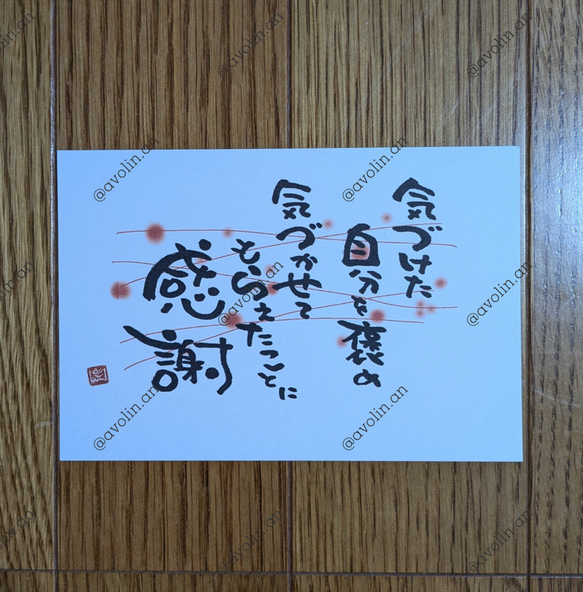 気づけた
自分を褒め
気づかせて
もらえたことに
感謝
@avolin.an
@avolin.an
@avolin.an
@avolin.an
@avolin.an
@avolin.an
@avolin.an
@avolin.an
@avolin.an
@avolin.an
@avolin.an